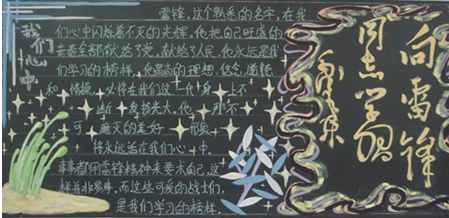 我们心中
雷锋,这个熟悉的名字,在我
们心中闪烁着不灭的光辉,他把自己旺盛的
全部献给了党,献给了人民,他永远是我
们学习的榜样,他高尚的理想、信念、道德
和情操,必将在我们这一代身上不
断发扬光大,他那不
可磨灭的美好形象
将永远立在我们心中
事事都用雷锋精神来要求自己,这
样并非易事,而这些可爱的战士们,
是我们学习的榜样。
向雷锋
同志学习
毛泽东